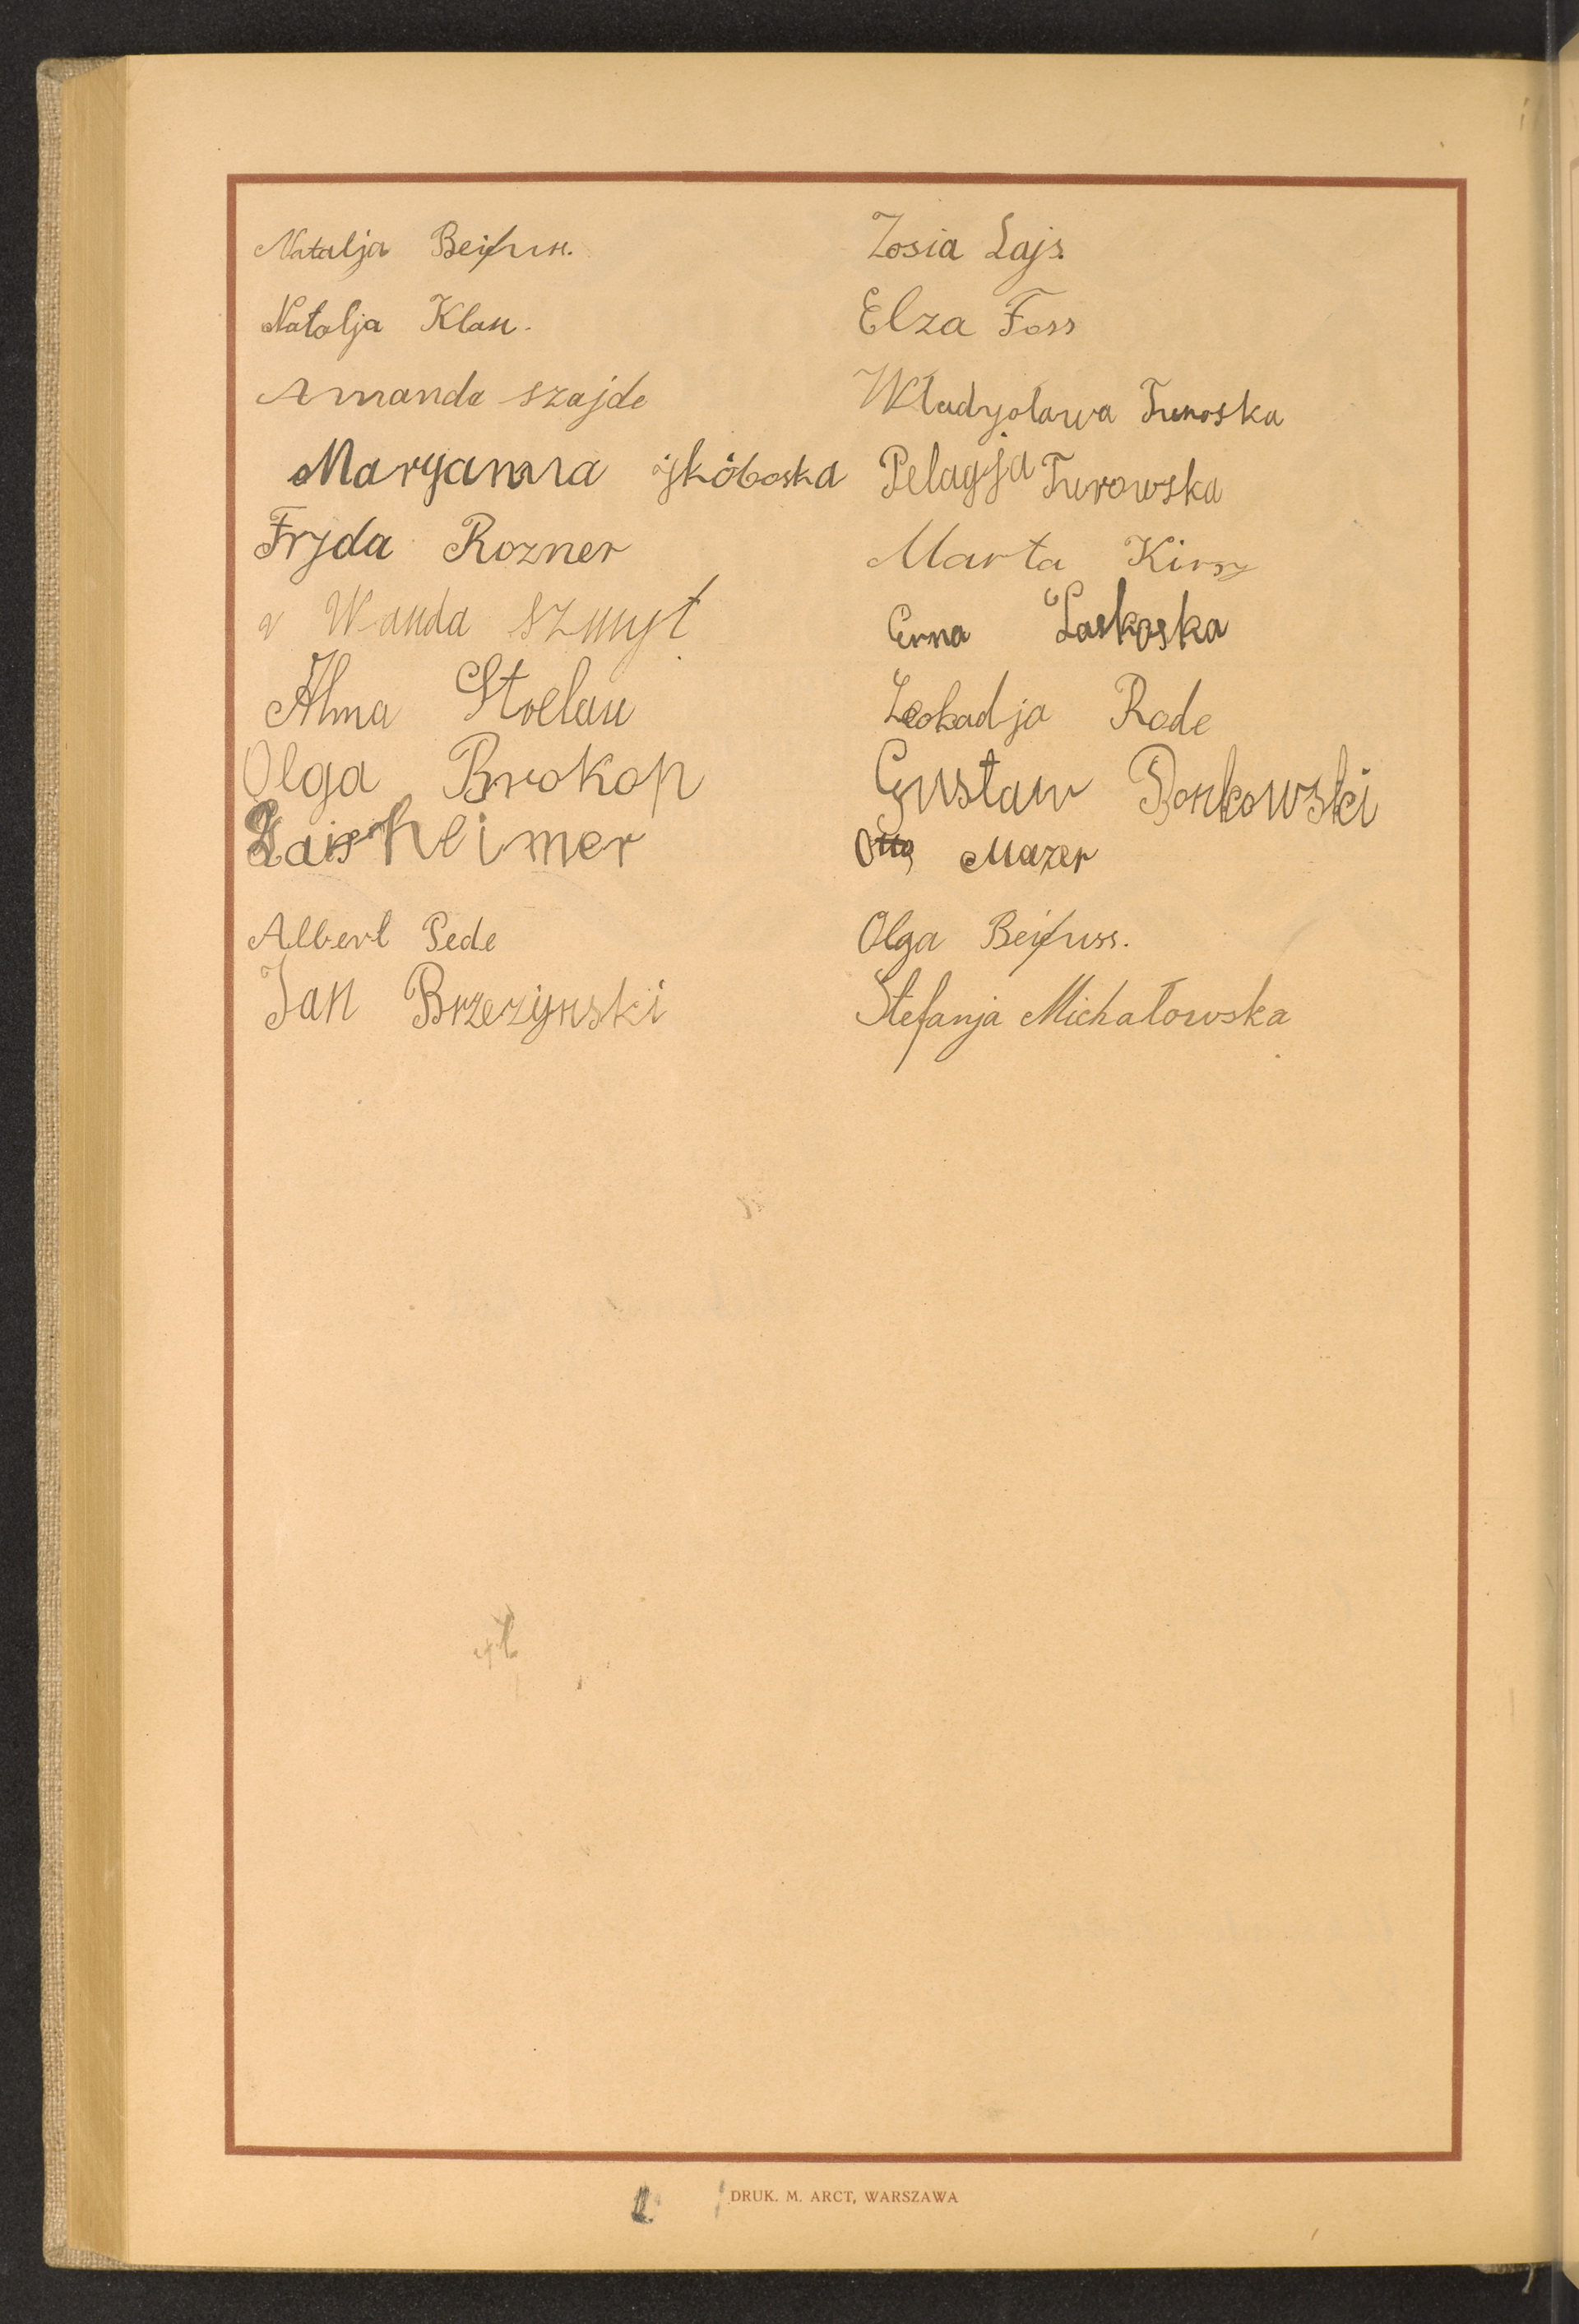 Natalja Beifuss.
Natalja Klau.
Amanda szajde
Maryanna jköboska
Fryda Rozner
Wanda szmyt
Alma Strelau
Olga Brokop
Heimer
Albert Pede
Jan Brzezynski
Zosia Lajs.
Elza Foss
Władysława Turoska
Pelagja Turowska
Marta Kirsz
Erna Laskoska
Leokadja Rode
Gustaw Donkowski
Otto Mazer
Olga Beifuss.
Stefanja Michałowska
DRUK. M. ARCT, WARSZAWA